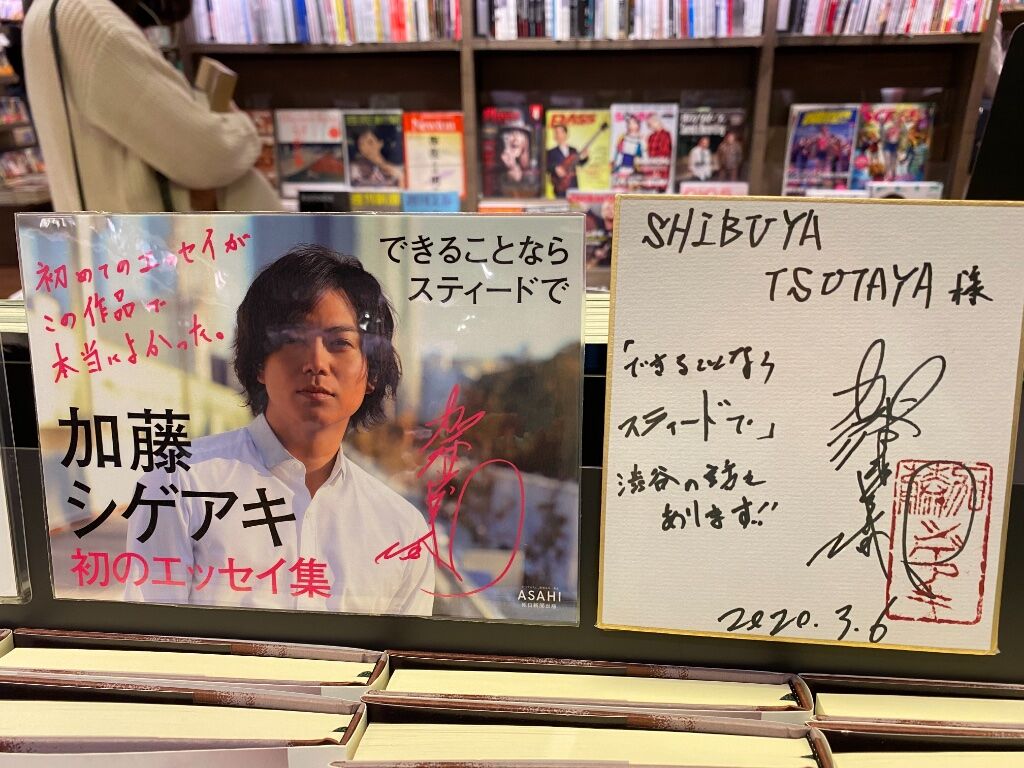 初めてのエッセイが
この作品で
本当によかった。
できることなら
スティードで
加藤
シゲアキ
初のエッセイ集
ASAHI
朝日新聞出版
SHIBUYA
TSUTAYA 様
「できることなら
スティードで」
渋谷の話も
あります!!
2020.3.6
Newton
BASS